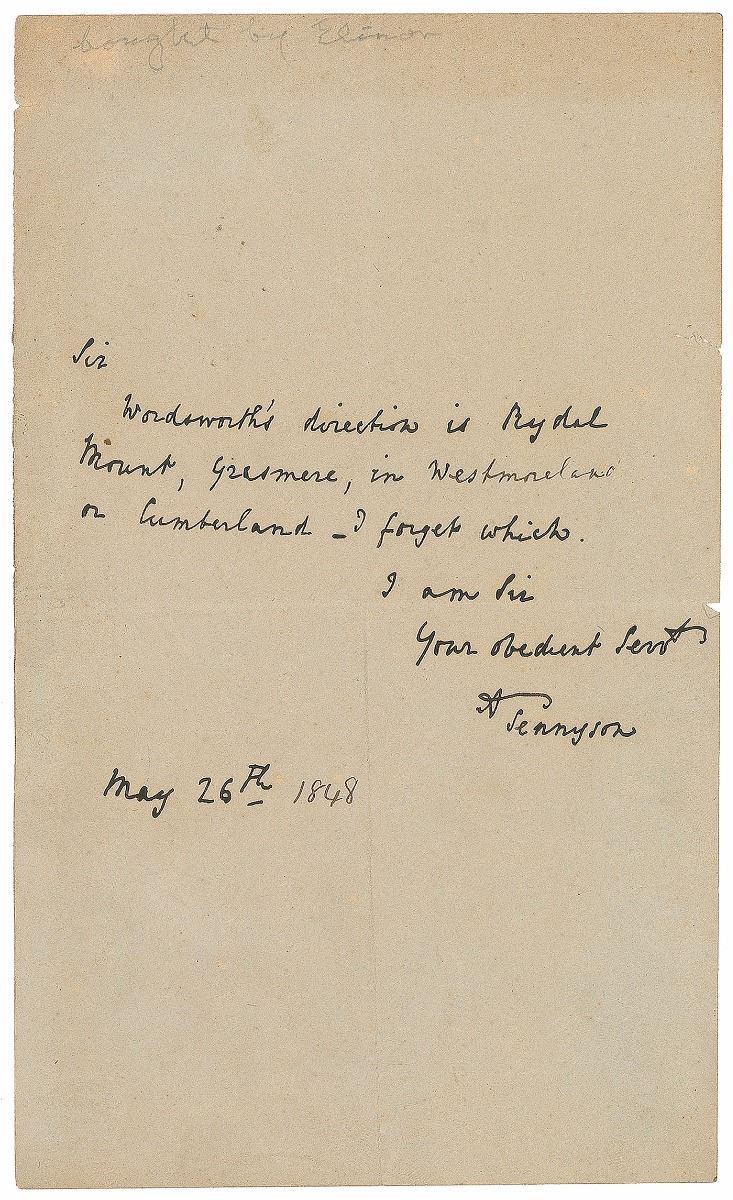 bought by Elinor
Sir
Wordsworth's direction is Rydal
Mount, Grasmere, in Westmoreland
or Cumberland - I forget which.
I am Sir
Your obedient Servt
A Tennyson
May 26th 1848